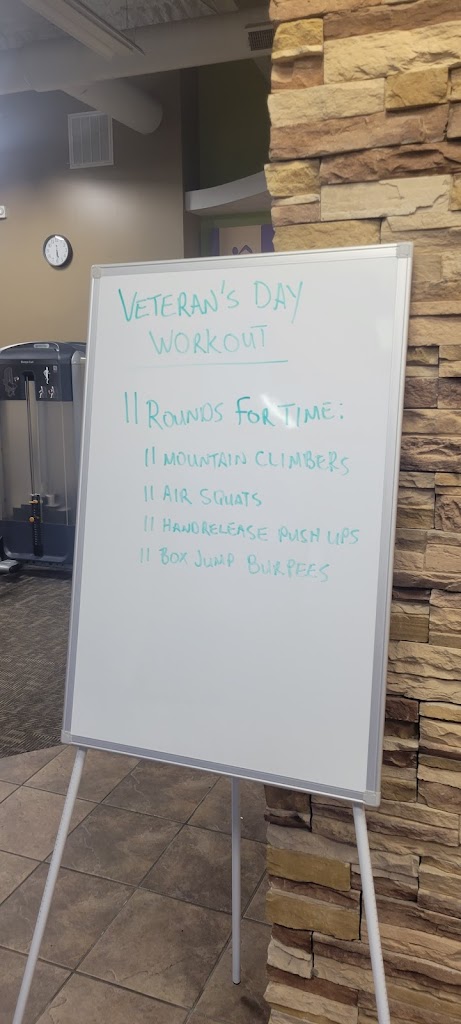 VETERAN'S DAY
WORKOUT
11 ROUNDS FOR TIME:
11 MOUNTAIN CLIMBERS
11 AIR SQUATS
11 HANDRELEASE PUSH UPS
11 BOX JUMP BURPEES